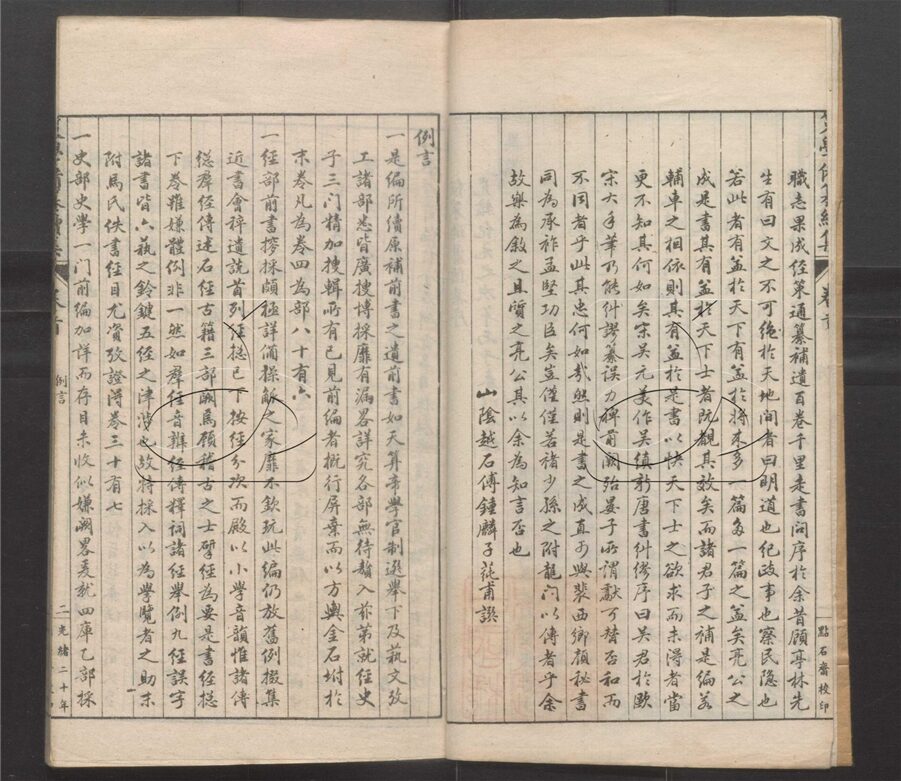 職志果成經策通纂補遺百卷千里走書問序於余昔顧亭林先
生有曰文之不可絶於天地間者曰明道也紀政事也察民隱也
若此者有益於天下有益於將來多一篇多一篇之益矣亮公之
成是書其有益於天下士者既覩其效矣而諸君子之補是編若
輔車之相依則其有益於是書以快天下士之欲求而未得者當
更不知其何如矣宋吴元美作吴縝新唐書糾繆序曰吴君於歐
宋大手筆乃能糾謬纂誤力裨前闕殆晏子所謂獻可替否和而
不同者乎此其忠何如哉然則是書之成直可與裴西鄉顔秘書
同為承祚孟堅功臣矣豈僅僅若褚少孫之附龍門以傳者乎余
故樂為敘之且質之亮公其以余為知言否也
山陰越石傅鍾麟子蒓甫譔
卷首
點石齋校印
例言
一是編所續原補前書之遺前書如天算音學官制選舉下及萟文攷
工諸部悉皆廣搜博採靡有漏畧詳究各部無待贅入茲第就經史
子三門精加搜輯所有已見前編者概行屏棄而以方輿金石坿於
末卷凡為卷四為部八十有六
一經部前書搒採頗極詳備操觚之家靡不欽玩此編仍放舊例掇集
近書會稡遺説首列經總已下按經分次而殿以小學音韻惟諸傳
總羣經傳述石經古籍三部闕焉願稽古之士擘經為要是書經總
下卷雖嫌體例非一然如羣經音辨經傳釋詞諸經舉例九經誤字
諸書皆六萟之鈐鍵五經之津涉也故特採入以為學覽者之助末
附馬氏佚書經目尤資攷證得卷三十有七
一史部史學一門前編加詳而存目未收似嫌闕畧爰就四庫乙部採
例言
光緒二十年